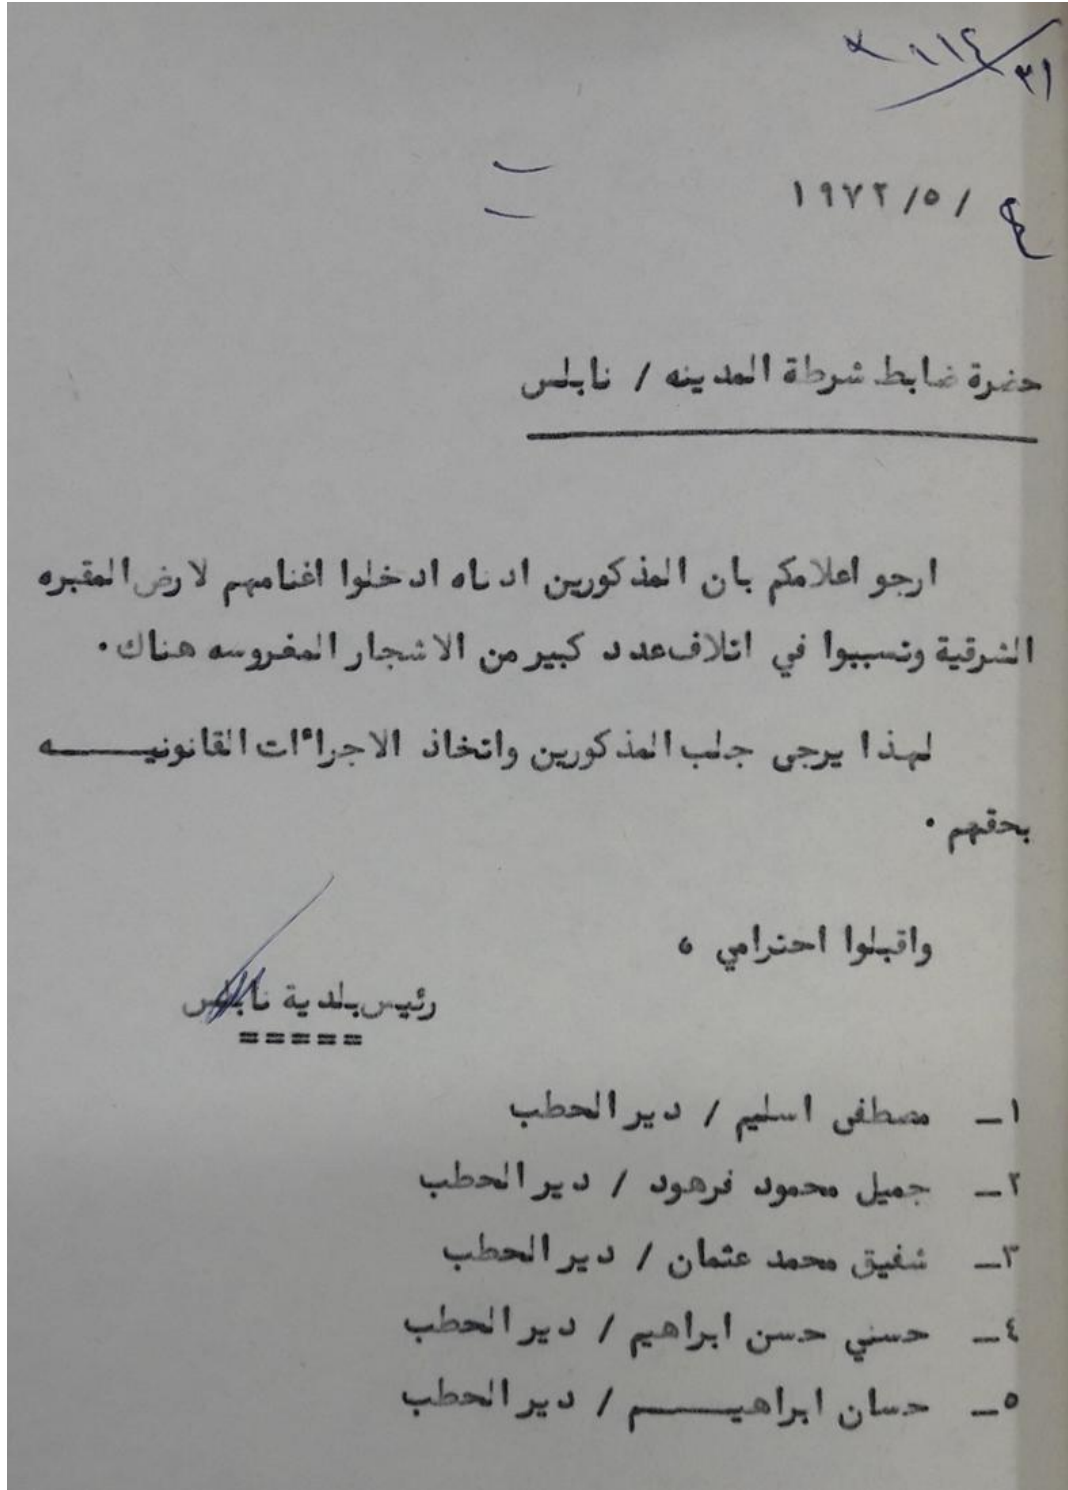 ٣١
٤ / ٥/ ١٩٧٢
حضرة ضابط شرطة المدينه / نابلس
ارجو اعلامكم بان المذكورين ادناه ادخلوا اغنامهم لارض المقبره
الشرقية وتسببوا في اتلاف عدد كبير من الاشجار المغروسه هناك ٠
لهذا يرجى جلب المذكورين واتخاذ الاجراءات القانونيـــــه
بحقهم ٠
واقبلوا احترامي ،
رئيس بلدية نابلس
=====
١ـ مصطفى اسليم / دير الحطب
٢ـ جميل محمود فرهود / دير الحطب
٣ـ شفيق محمد عثمان / دير الحطب
٤ـ حسني حسن ابراهيم / دير الحطب
٥ـ حسان ابراهيـــــم / دير الحطب